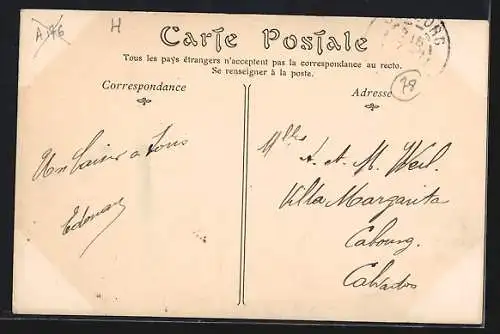 A 176
H
Carte Postale
Tous les pays étrangers n'acceptent pas la correspondance au recto.
Se renseigner à la poste.
Correspondance
Adresse
78
Un baiser a tous
Edouard
Mlles A. et M. Weil.
Villa Margarita
Cabourg.
Calvados